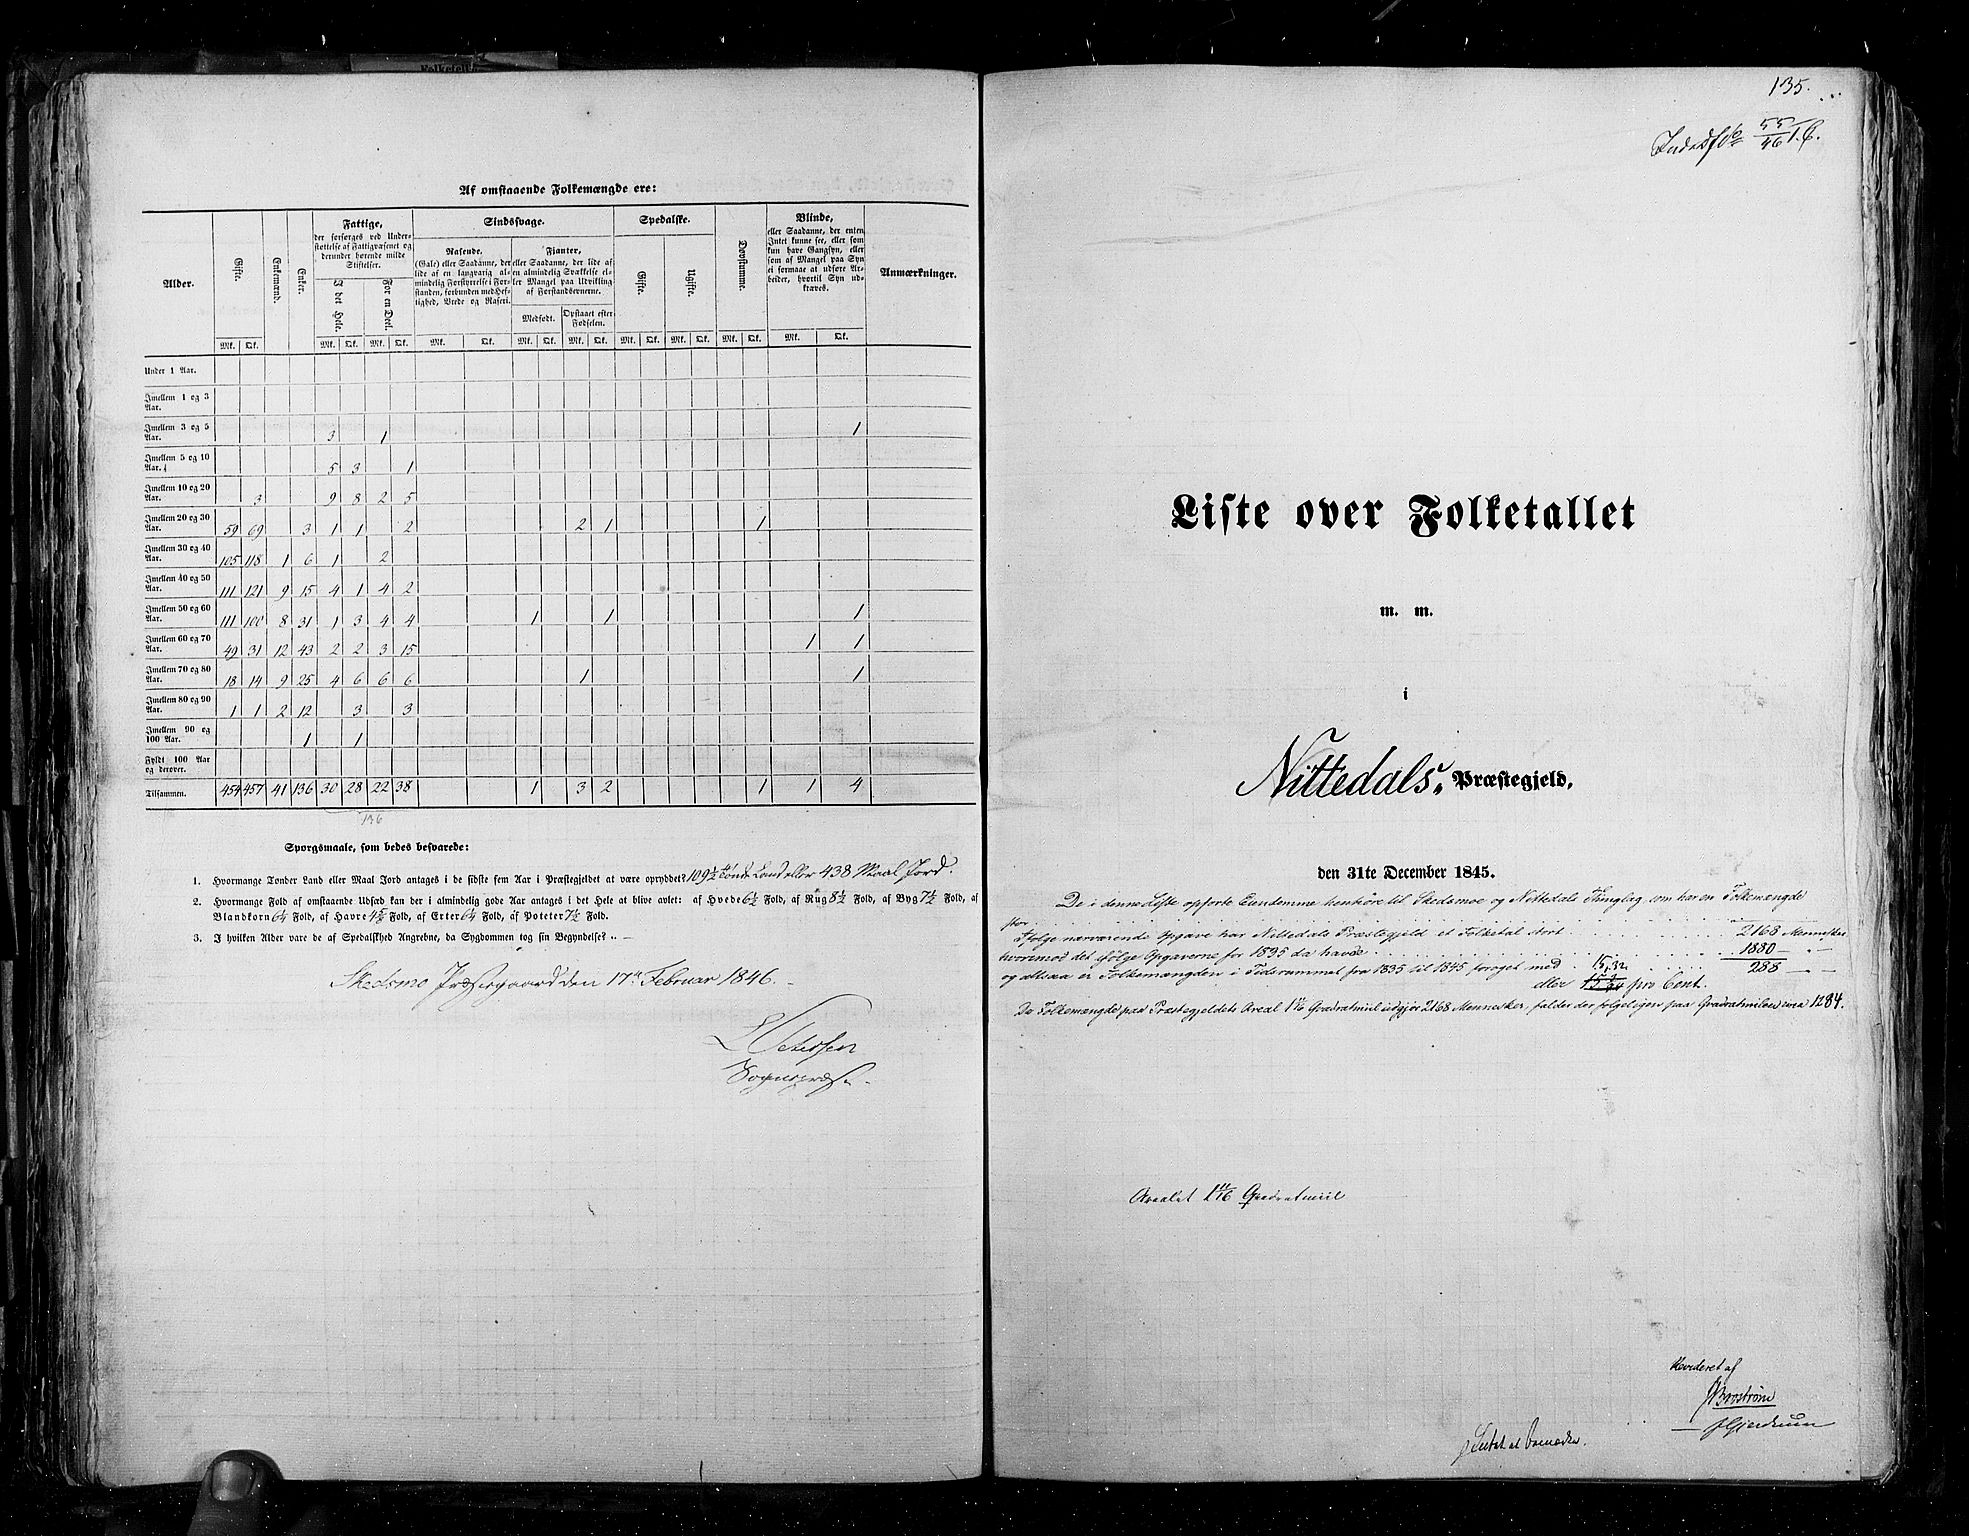 Af omstaaende Folkemængde ere:
Alder. Gifte. Enkemænd. Enker. Fattige, der forsørges ved Understøttelse af Fattigvæsenet og derunder hørende milde Stiftelser. Sindssvage. Spedalske. Døvstumme. Blinde, eller Saadanne, der enten Intet kunne see, eller som kun have Gangsyn, eller som af Mangel paa Syn ei formaae at udføre Arbeider, hvortil Syn udkræves. Anmærkninger.
I det Hele. For en Deel. Rasende, (Gale) eller Saadanne, der lide af en langvarig almindelig Forstyrrelse i Forstanden, forbunden med Heftighed, Vrede og Raseri. Fjanter, eller Saadanne, der lide af en almindelig Svækkelse eller Mangel paa Udvikling af Forstandsevnerne. Gifte. Ugifte.
Medfødt. Opstaaet efter Fødselen.
Mk. Qk. Mk. Qk. Mk. Qk. Mk. Qk. Mk. Qk. Mk. Qk. Mk. Qk. Mk. Qk. Mk. Qk. Mk. Qk.
Under 1 Aar.
Imellem 1 og 3 Aar.
Imellem 3 og 5 Aar. 3 1 1
Imellem 5 og 10 Aar. 5 3 1
Imellem 10 og 20 Aar. 3 9 8 2 5
Imellem 20 og 30 Aar. 59 69 3 1 1 2 2 1 1
Imellem 30 og 40 Aar. 105 118 1 6 1 2
Imellem 40 og 50 Aar. 111 121 9 15 4 1 4 2
Imellem 50 og 60 Aar. 111 100 8 31 1 3 4 4 1 1 1
Imellem 60 og 70 Aar. 49 31 12 43 2 2 3 15 1 1
Imellem 70 og 80 Aar. 18 14 9 25 4 6 6 6 1 1
Imellem 80 og 90 Aar. 1 1 2 12 3 3
Imellem 90 og 100 Aar. 1 1
Fyldt 100 Aar og derover.
Tilsammen. 454 457 41 136 30 28 22 38 1 3 2 1 1 4
136
Spørgsmaale, som bedes besvarede:
1. Hvormange Tønder Land eller Maal Jord antages i de sidste fem Aar i Præstegjeldet at være opryddet? 109½ Tønde Land eller 438 Maal Jord.
2. Hvormange Fold af omstaaende Udsæd kan der i almindelig gode Aar antages i det Hele at blive avlet: af Hvede 6½ Fold, af Rug 8½ Fold, af Byg 7½ Fold, af
Blandkorn 6¼ Fold, af Havre Fold, af Erter 6¼ Fold, af Poteter 7½ Fold.
3. I hvilken Alder vare de af Spedalskhed Angrebne, da Sygdommen tog sin Begyndelse? „ —
Skedsmo Præstegaard den 17de Februar 1846.
Sognepræst
135.
55/46
Liste over Folketallet
m. m.
i
Nittedals Præstegjeld,
den 31te December 1845.
De i denne Liste opførte Eiendomme henhøre til Skedsmoe og Nittedals Thinglag som har en Folkemængde
stor
Ifølge nærværende Opgave har Nittedals Præstegjeld et Folketal stort . . . 2168 Mennesker
hvorimod det ifølge Opgaverne for 1835 da havde . . . 1880 — " —
og altsaa er Folkemængden i Tidsrummet fra 1835 til 1845 forøget med . . . 288 — " —
eller 15,32 pro Cent.
Da Folkemængde paa Præstegjeldets Areal 1 11/16 Qvadratmiil udgjør 2168 Mennesker, falder der følgeligen paa Qvadratmilen circa 1284.
Arealet 1 11/16 Qvadratmiil
Revideret af
Broström
Gjerdrum